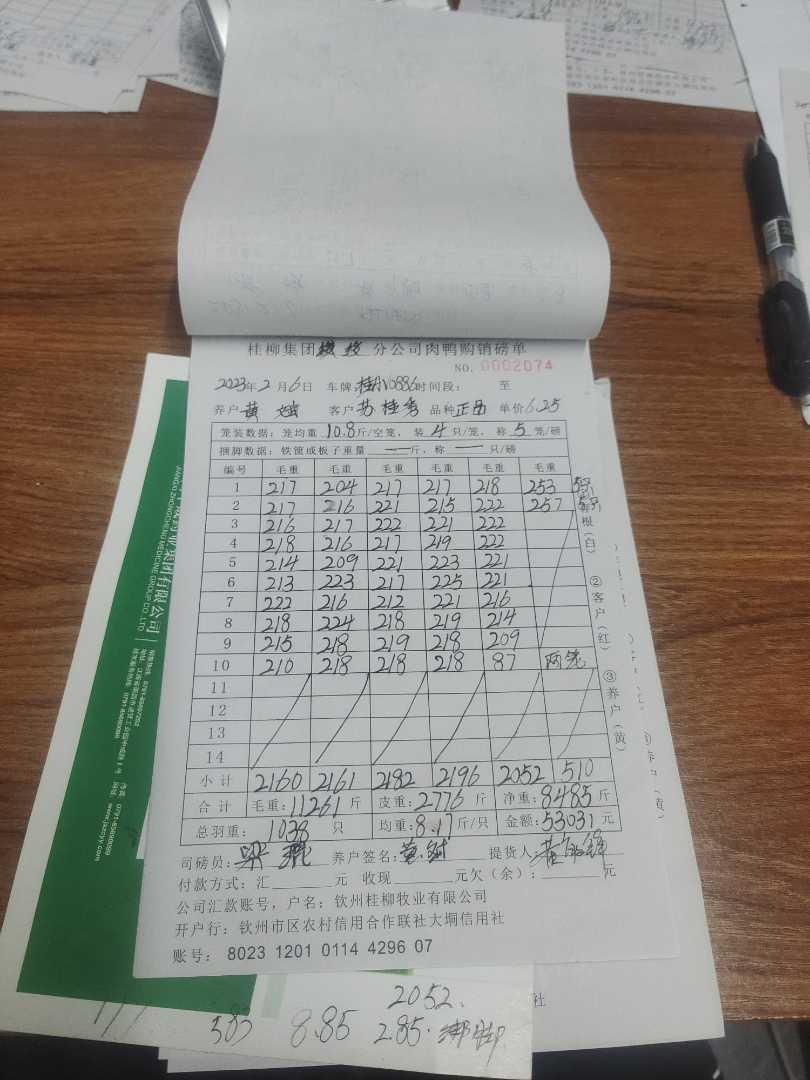 桂柳集团 分公司肉鸭购销磅单
NO. 0002074
2023年2月6日 车牌:桂小0886时间段: 至
养户 黄 客户 苏桂秀 品种 正品 单价6.25
笼装数据: 笼均重 10.8斤/空笼, 装 4 只/笼, 称 5 笼/磅
捆脚数据: 铁筐或板子重量 — 斤, 称 — 只/磅
编号 毛重 毛重 毛重 毛重 毛重 毛重
1 217 204 217 217 218 253
2 217 216 221 215 222 257
3 216 217 222 221 222
4 218 216 217 219 222
5 214 209 221 223 221
6 213 223 217 225 221
7 222 216 212 221 216
8 218 224 218 219 214
9 215 218 219 218 209
10 210 218 218 218 87 两笼
11
12
13
14
小计 2160 2161 2182 2196 2052 510
合计 毛重:11261斤 皮重:2776斤 净重:8485斤
总羽重: 1038 只 均重:8.17斤/只 金额:53031元
司磅员: 梁 养户签名: 黄 提货人:
付款方式:汇 元 收现 元欠(余): 元
公司汇款账号, 户名: 钦州桂柳牧业有限公司
开户行: 钦州市区农村信用合作联社大垌信用社
账号: 8023 1201 0114 4296 07
根(白)
②客户(红)
③养户(黄)
2052.
583 8.85 2.85. 绑脚
社
JIANGXI ZHONGCHENG MEDICINE GROUP CO.,LTD
药业集团有限公司
www.jazcyy.com